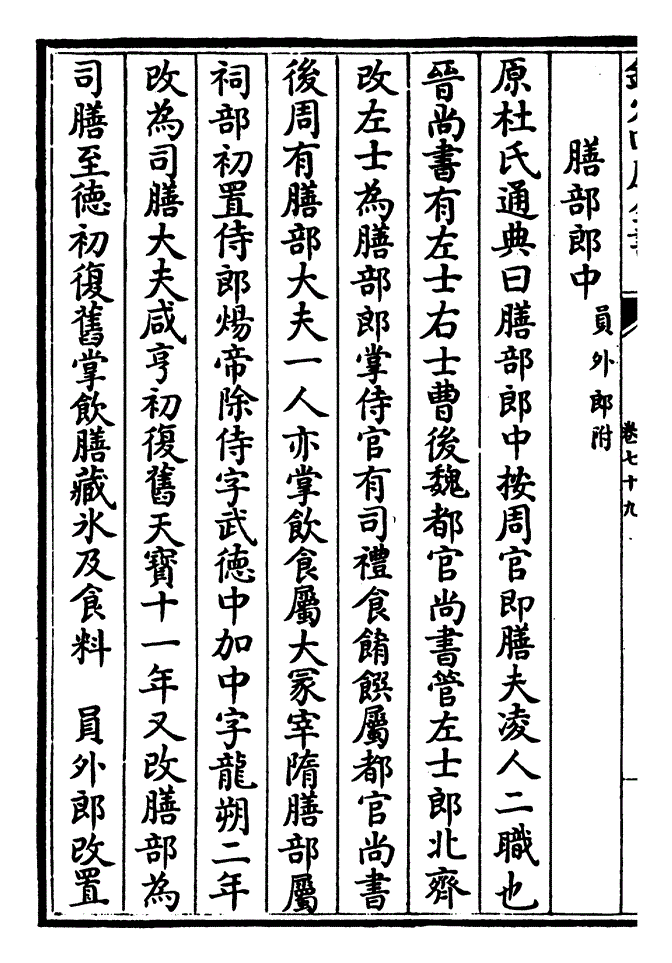 卷七十九
膳部郎中 員外郎附
原杜氏通典曰膳部郎中按周官即膳夫凌人二職也
晉尚書有左士右士曹後魏都官尚書管左士郎北齊
改左士為膳部郎掌侍官有司禮食餚饌屬都官尚書
後周有膳部大夫一人亦掌飲食屬大冢宰隋膳部屬
祠部初置侍郎煬帝除侍字武德中加中字龍朔二年
改為司膳大夫咸亨初復舊天寶十一年又改膳部為
司膳至德初復舊掌飲膳藏氷及食料 員外郎改置